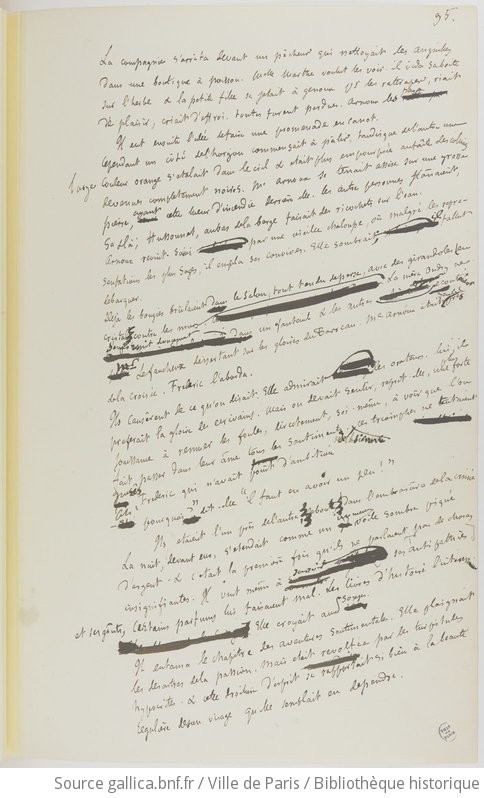 95.
La compagnie s'arrêta devant un pêcheur qui nettoyait des anguilles
dans une boutique à poisson. Melle Marthe voulut les voir. il vida sa boîte
sur l'herbe & la petite fille se jetait à genoux ps les rattraper, riait
de plaisir, criait d'effroi. toutes furent perdues. Arnoux les
Il eut ensuite l'idée de faire une promenade en canot.
Cependant un côté de l'horizon commençait à pâlir, tandis que de l'autre une
large couleur orange s'étalait dans le ciel & était plus empourprée au faîte des collines
devenues complètement noires. Me Arnoux se tenait assise sur une grosse
pierre, ayant cette lueur d'incendie derrière elle. les autres personnes flânaient,
çà & là ; Hussonnet, au bas de la berge faisait des ricochets sur l'eau.
Arnoux revint. Suivi par une vieille chaloupe, où malgré les repré-
sentations les plus sages, il empila ses convives. Elle sombrait ; il fallut
débarquer.
Déjà les bougies brûlaient dans le salon, tout tendu de perse, avec des girandoles en
cristal contre les murs. La mère Oudry
dans un fauteuil & les autres
Mr Lefaucheux dissertant sur les gloires du Barreau. Me Arnoux était
de la croisée. Frederic l'aborda.
Ils causèrent de ce qu'on disait. Elle admirait les orateurs. lui, il
préférait la gloire des écrivains. Mais on devait sentir, reprit-elle, une forte
jouissance à remuer les foules, directement, soi-même, à voir que l'on
fait passer dans leur âme tous les sentiments de la sienne
Ces triomphes, ne tentaient
guères Frederic qui n'avait point d'ambition
– pourquoi? dit-elle "il faut en avoir un peu!"
Ils étaient l'un près de l'autre debout dans l'embrasure de la croisée
La nuit, devant eux, s'étendait comme un voile sombre piqué
d'argent. & c'était la première fois qu'ils ne parlaient pas de choses
insignifiantes. Il vint même à ses antipathies
et ses goûts, Certains parfums lui faisaient mal. des livres d'histoire l'intéressaient
Elle croyait aux songes
Il entama le chapitre des aventures sentimentales. Elle plaignait
les désastres de la passion, mais était révoltée par les turpitudes
hypocrites. & cette droiture d'esprit se rapportait si bien à la beauté
régulière de son visage qu'elle semblait en dépendre.
Source gallica.bnf.fr / Ville de Paris / Bibliothèque historique